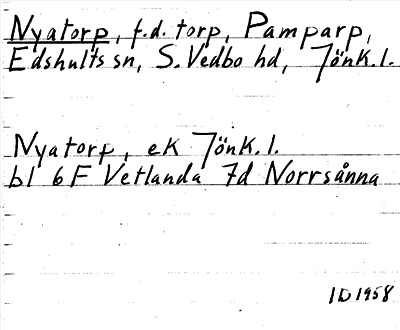 Nyatorp, f.d. torp, Pamparp,
Edshults sn, S. Vedbo hd, Jönk. l.
Nyatorp, ek Jönk. l.
bl 6 F Vetlanda 7d Norrsånna
ID 1958